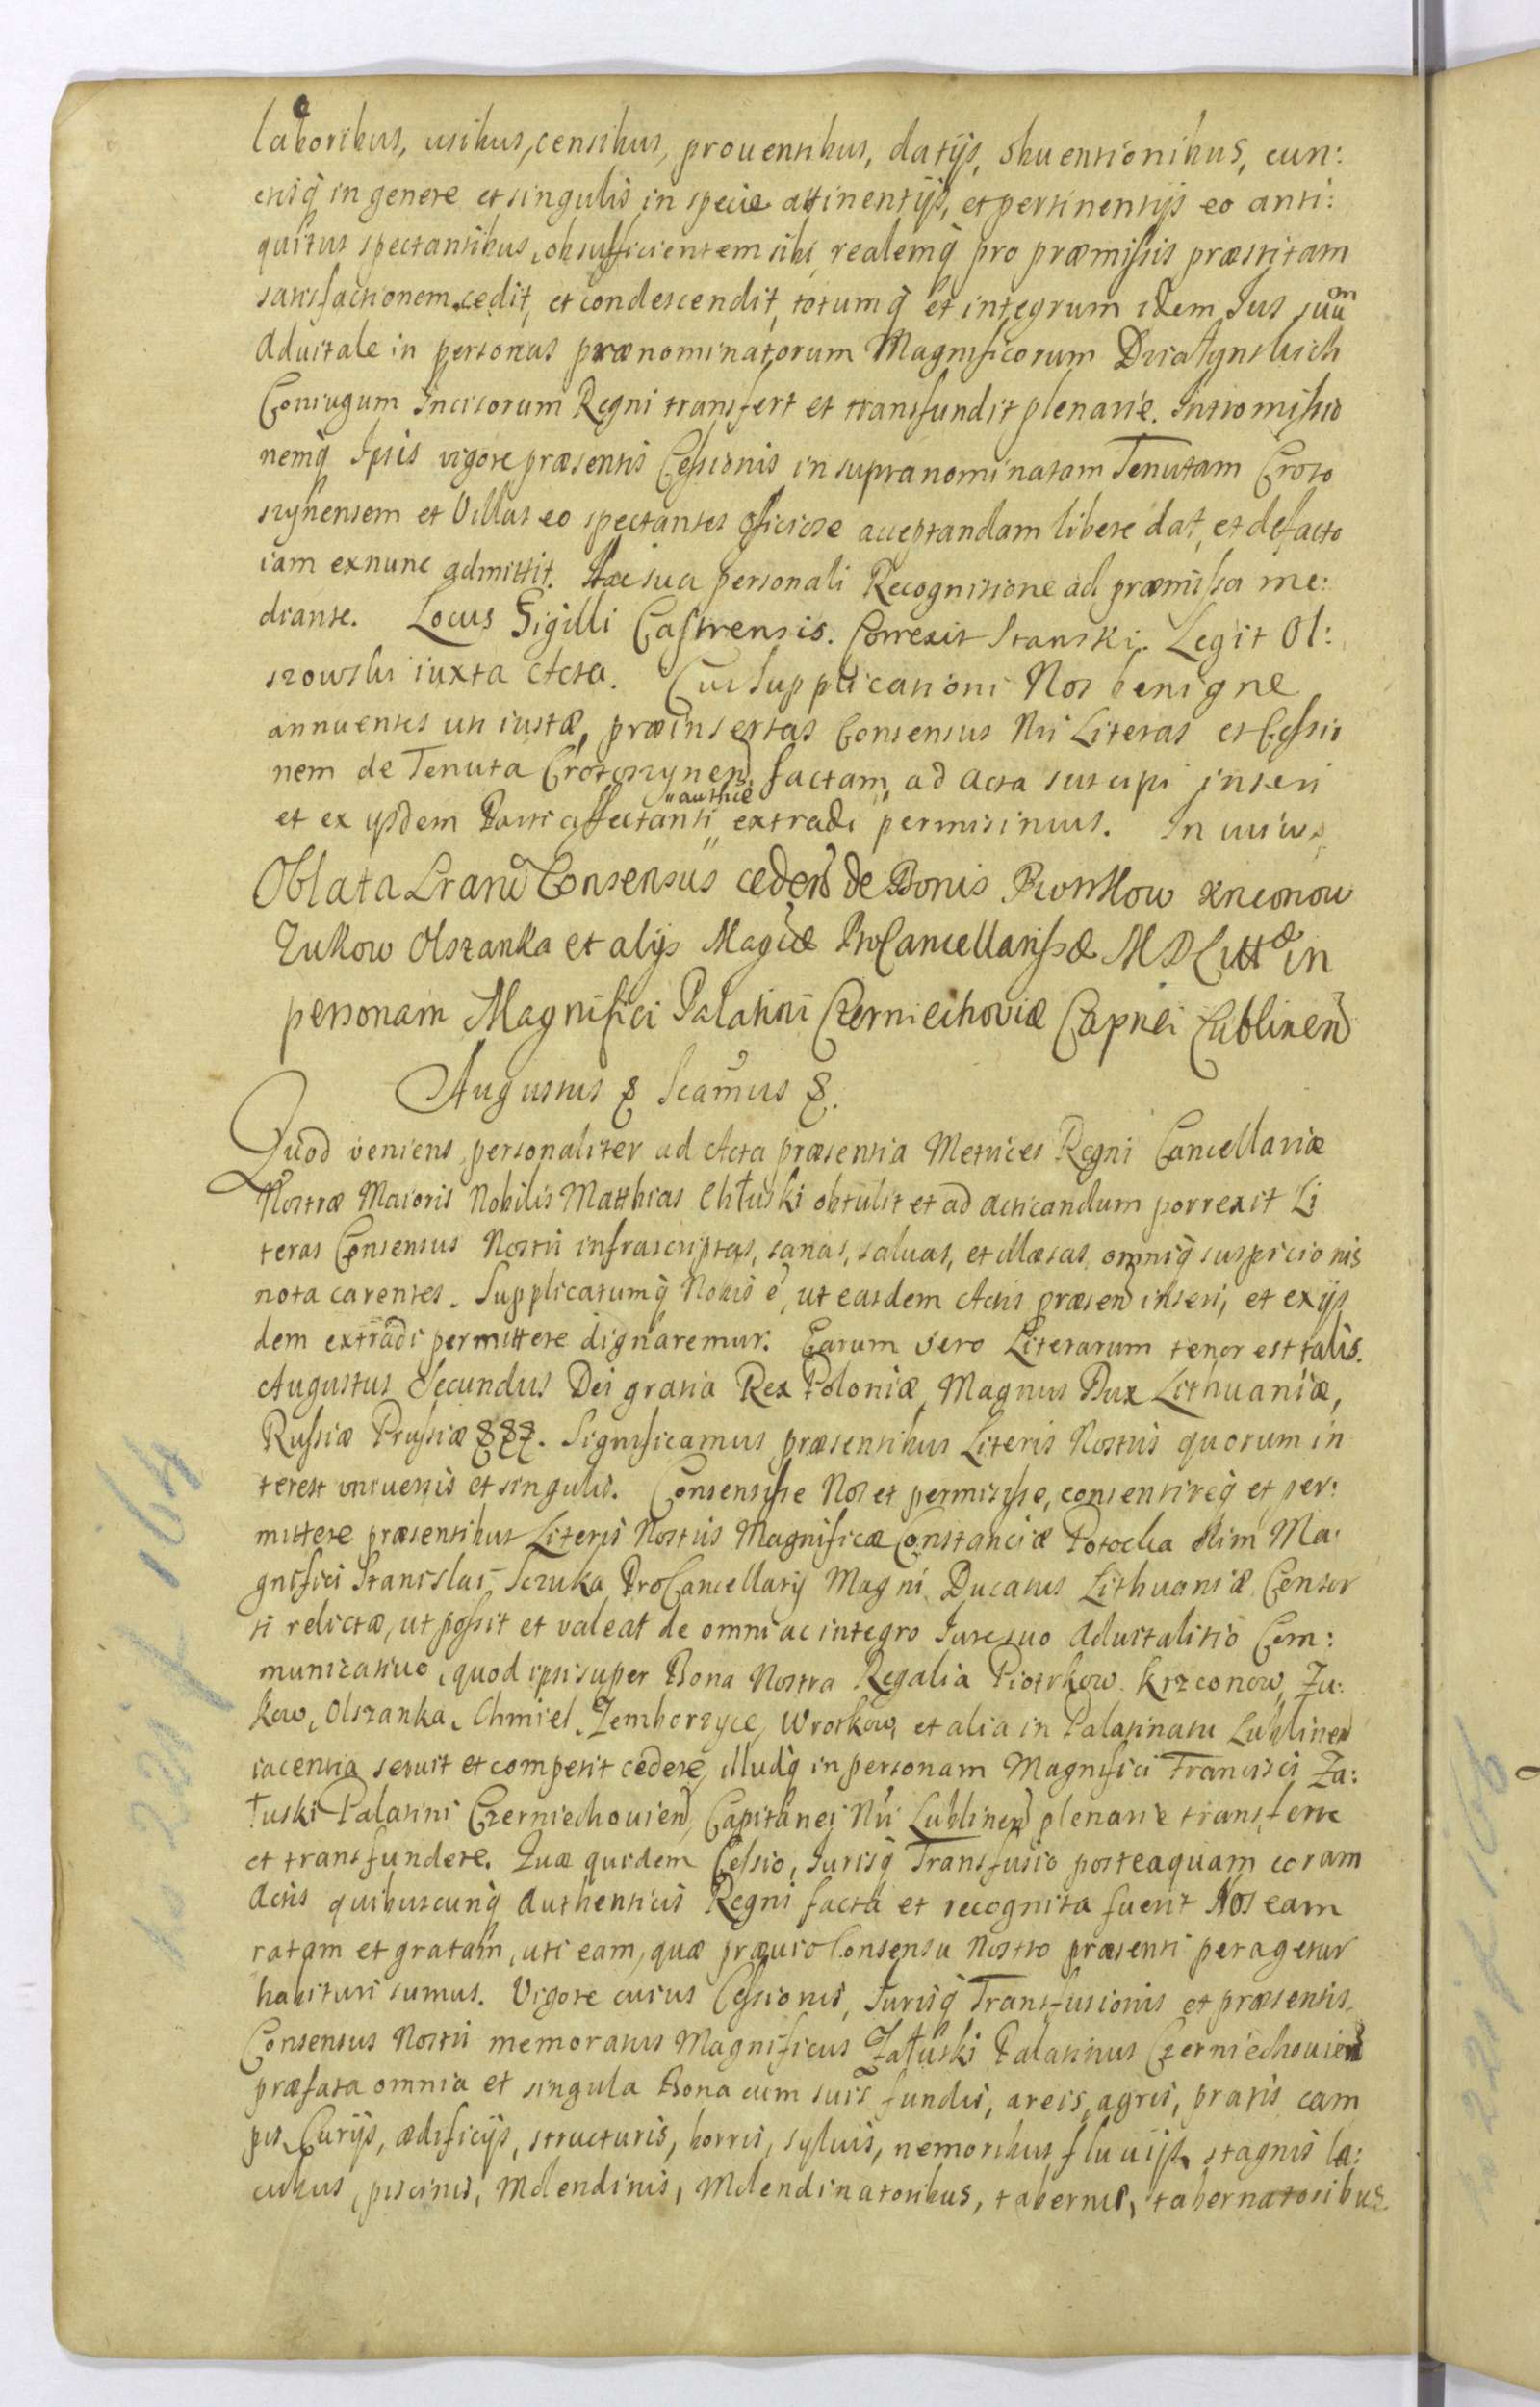 laboribus, usibus, censibus, prouentibus, datijs, obuentionibus, cun:
ctisq in genere et singulis in specie attinentijs, et pertinentijs eo anti:
quitus spectantibus, ob sufficientem sibi realemq pro præmissis præstitam
satisfactionem cedit, et condescendit, totumq et integrum idem Jus suum
aduitale in personas prænominatorum Magnificorum
Coniugum Incisorum Regni transfert et transfundit plenarie. Intromissio
nemq Ipsis vigore præsentis Cessionis in supranominatam Tenutam Croto
szynensem et Villas eo spectantes officiose acceptandam libere dat, et defacto
iam exnunc admittit. Hac sua personali Recognitione ad præmissa me:
diante. Locus Sigilli Castrensis. Correxit Stanski. Legit Ol:
szowski iuxta Acta. Cui Supplicationi Nos benigne
annuentes uti iustæ, præinsertas Consensus Nri Literas et Cessio
nem de Tenuta Crotoszynen factam ad acta suscipi inseri
et ex ijsdem Parti affectanti authce extradi permisimus. In cuius
Oblata Lraru Consensus ceden de Bonis Piotrkow Krzconow
Zukow Olszanka et alijs Magcæ ProCancellarissæ M D Littæ in
personam Magnifici Palatini Czerniechoviæ Capnei Lublinen
Augustus & Scamus &.
Quod veniens personaliter ad Acta præsentia Metrices Regni Cancellariæ
Nostræ Maioris Nobilis Matthias Chłuski obtulit et ad acticandum porrexit Li
teras Consensus Nostri infrascriptas, sanas, saluas, et illæsas, omniq suspicionis
nota carentes. Supplicatumq Nobis e, ut easdem Actis præsen inseri, et ex ijs
dem extradi permittere dignaremur. Earum vero Literarum tenor est talis.
Augustus Secundus Dei gratia Rex Poloniæ, Magnus Dux Lithuaniæ,
Russiæ Prussiæ &&&. Significamus præsentibus Literis Nostris quorum in
terest vniuersis et singulis. Consensisse Nos et permisisse, consentireq et per:
mittere præsentibus Literis Nostris Magnificæ Constanciæ Potocka olim Ma:
gnifici Stanislai Sczuka ProCancellarij Magni Ducatus Lithuaniæ Consor
ti relictæ, ut possit et valeat de omni ac integro Iure suo Aduitalitio Com:
municatiuo, quod ipsi super Bona Nostra Regalia Piotrkow. Krzconow, Zu:
kow, Olszanka, Chmiel, Zemborzyce, Wrotkow, et alia in Palatinatu Lublinen
iacentia seruit et competit cedere, illudq in personam Magnifici Francisci Za:
łuski Palatini Czerniechouien, Capitanei Nri Lublinen plenarie transferre
et transfundere. Quæ quidem Cessio, Jurisq Transfusio posteaquam coram
Actis quibuscunq Authenticis Regni facta et recognita fuerit Nos eam
ratam et gratam, uti eam, quæ præuio Consensu Nostro præsenti peragetur
habituri sumus. Vigore cuius Cessionis, Jurisq Transfusionis et præsentis
Consensus Nostri memoratus Magnificus Załuski Palatinus Czerniechouien
præfata omnia et singula Bona cum suis fundis, areis, agris, pratis cam
pis, Curijs, ædificijs, structuris, horris, syluis, nemoribus fluuijs, stagnis la:
cubus, piscinis, Molendinis, Molendinatoribus, tabernis, tabernatoribus